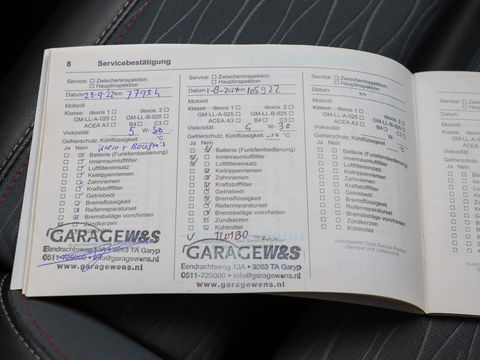 8 Servicebestätigung
Service: ☐ Zwischeninspektion
☐ Hauptinspektion
Datum 23-9-22 km 77934
Motoröl
Klasse: dexos 1 ☐ dexos 2 ☐
GM-LL-A-025 ☐ GM-LL-B-025 ☐
ACEA A3 ☐ B4 ☐ C3 ☐
Viskosität: 5 W- 30
Gefrierschutz, Kühlflüssigkeit: °C
Ja Nein
Batterie (Funkfernbedienung)
Innenraumluftfilter
Luftfiltereinsatz
Keilrippenriemen
Zahnriemen
Kraftstofffilter
Getriebeöl
Bremsflüssigkeit
Reifenreparaturset
Bremsbeläge vorn/hinten
Zündkerzen
GARAGEW&S
Eendrachtsweg 13A • 9263 TA Garyp
0511-725000 • info@garagewens.nl
www.garagewens.nl
Service: ☐ Zwischeninspektion
☐ Hauptinspektion
Datum 1-8-2024 km 105922
Motoröl
Klasse: dexos 1 ☐ dexos 2 ☐
GM-LL-A-025 ☐ GM-LL-B-025 ☐
ACEA A3 ☐ B4 ☐ C3 ☐
Viskosität: 5 W- 30
Gefrierschutz, Kühlflüssigkeit: °C
Ja Nein
Batterie (Funkfernbedienung)
Innenraumluftfilter
Luftfiltereinsatz
Keilrippenriemen
Zahnriemen
Kraftstofffilter
Getriebeöl
Bremsflüssigkeit
Reifenreparaturset
Bremsbeläge vorn/hinten
Zündkerzen
Kühlmittel
GARAGEW&S
Eendrachtsweg 13A • 9263 TA Garyp
0511-725000 • info@garagewens.nl
www.garagewens.nl
Service: ☐ Zwischeninspektion
☐ Hauptinspektion
Datum km
Motoröl
Klasse: dexos 1 ☐ dexos 2 ☐
GM-LL-A-025 ☐ GM-LL-B-025 ☐
ACEA A3 ☐ B4 ☐ C3 ☐
Viskosität: W-
Gefrierschutz, Kühlflüssigkeit: °C
Ja Nein
Batterie (Funkfernbedienung)
Innenraumluftfilter
Luftfiltereinsatz
Keilrippenriemen
Zahnriemen
Kraftstofffilter
Getriebeöl
Bremsflüssigkeit
Reifenreparaturset
Bremsbeläge vorn/hinten
Zündkerzen
Kühlmittel
Stempel und Unterschrift